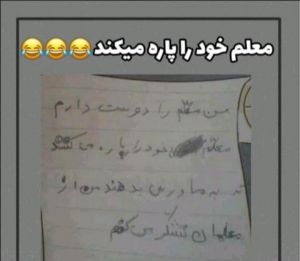 معلم خود را پاره میکند 😂😂😂
من معلم را دوست دارم
معلم خود را پاره می کند
که به ما درس بدهند من از
معلمان تشکر می کنم